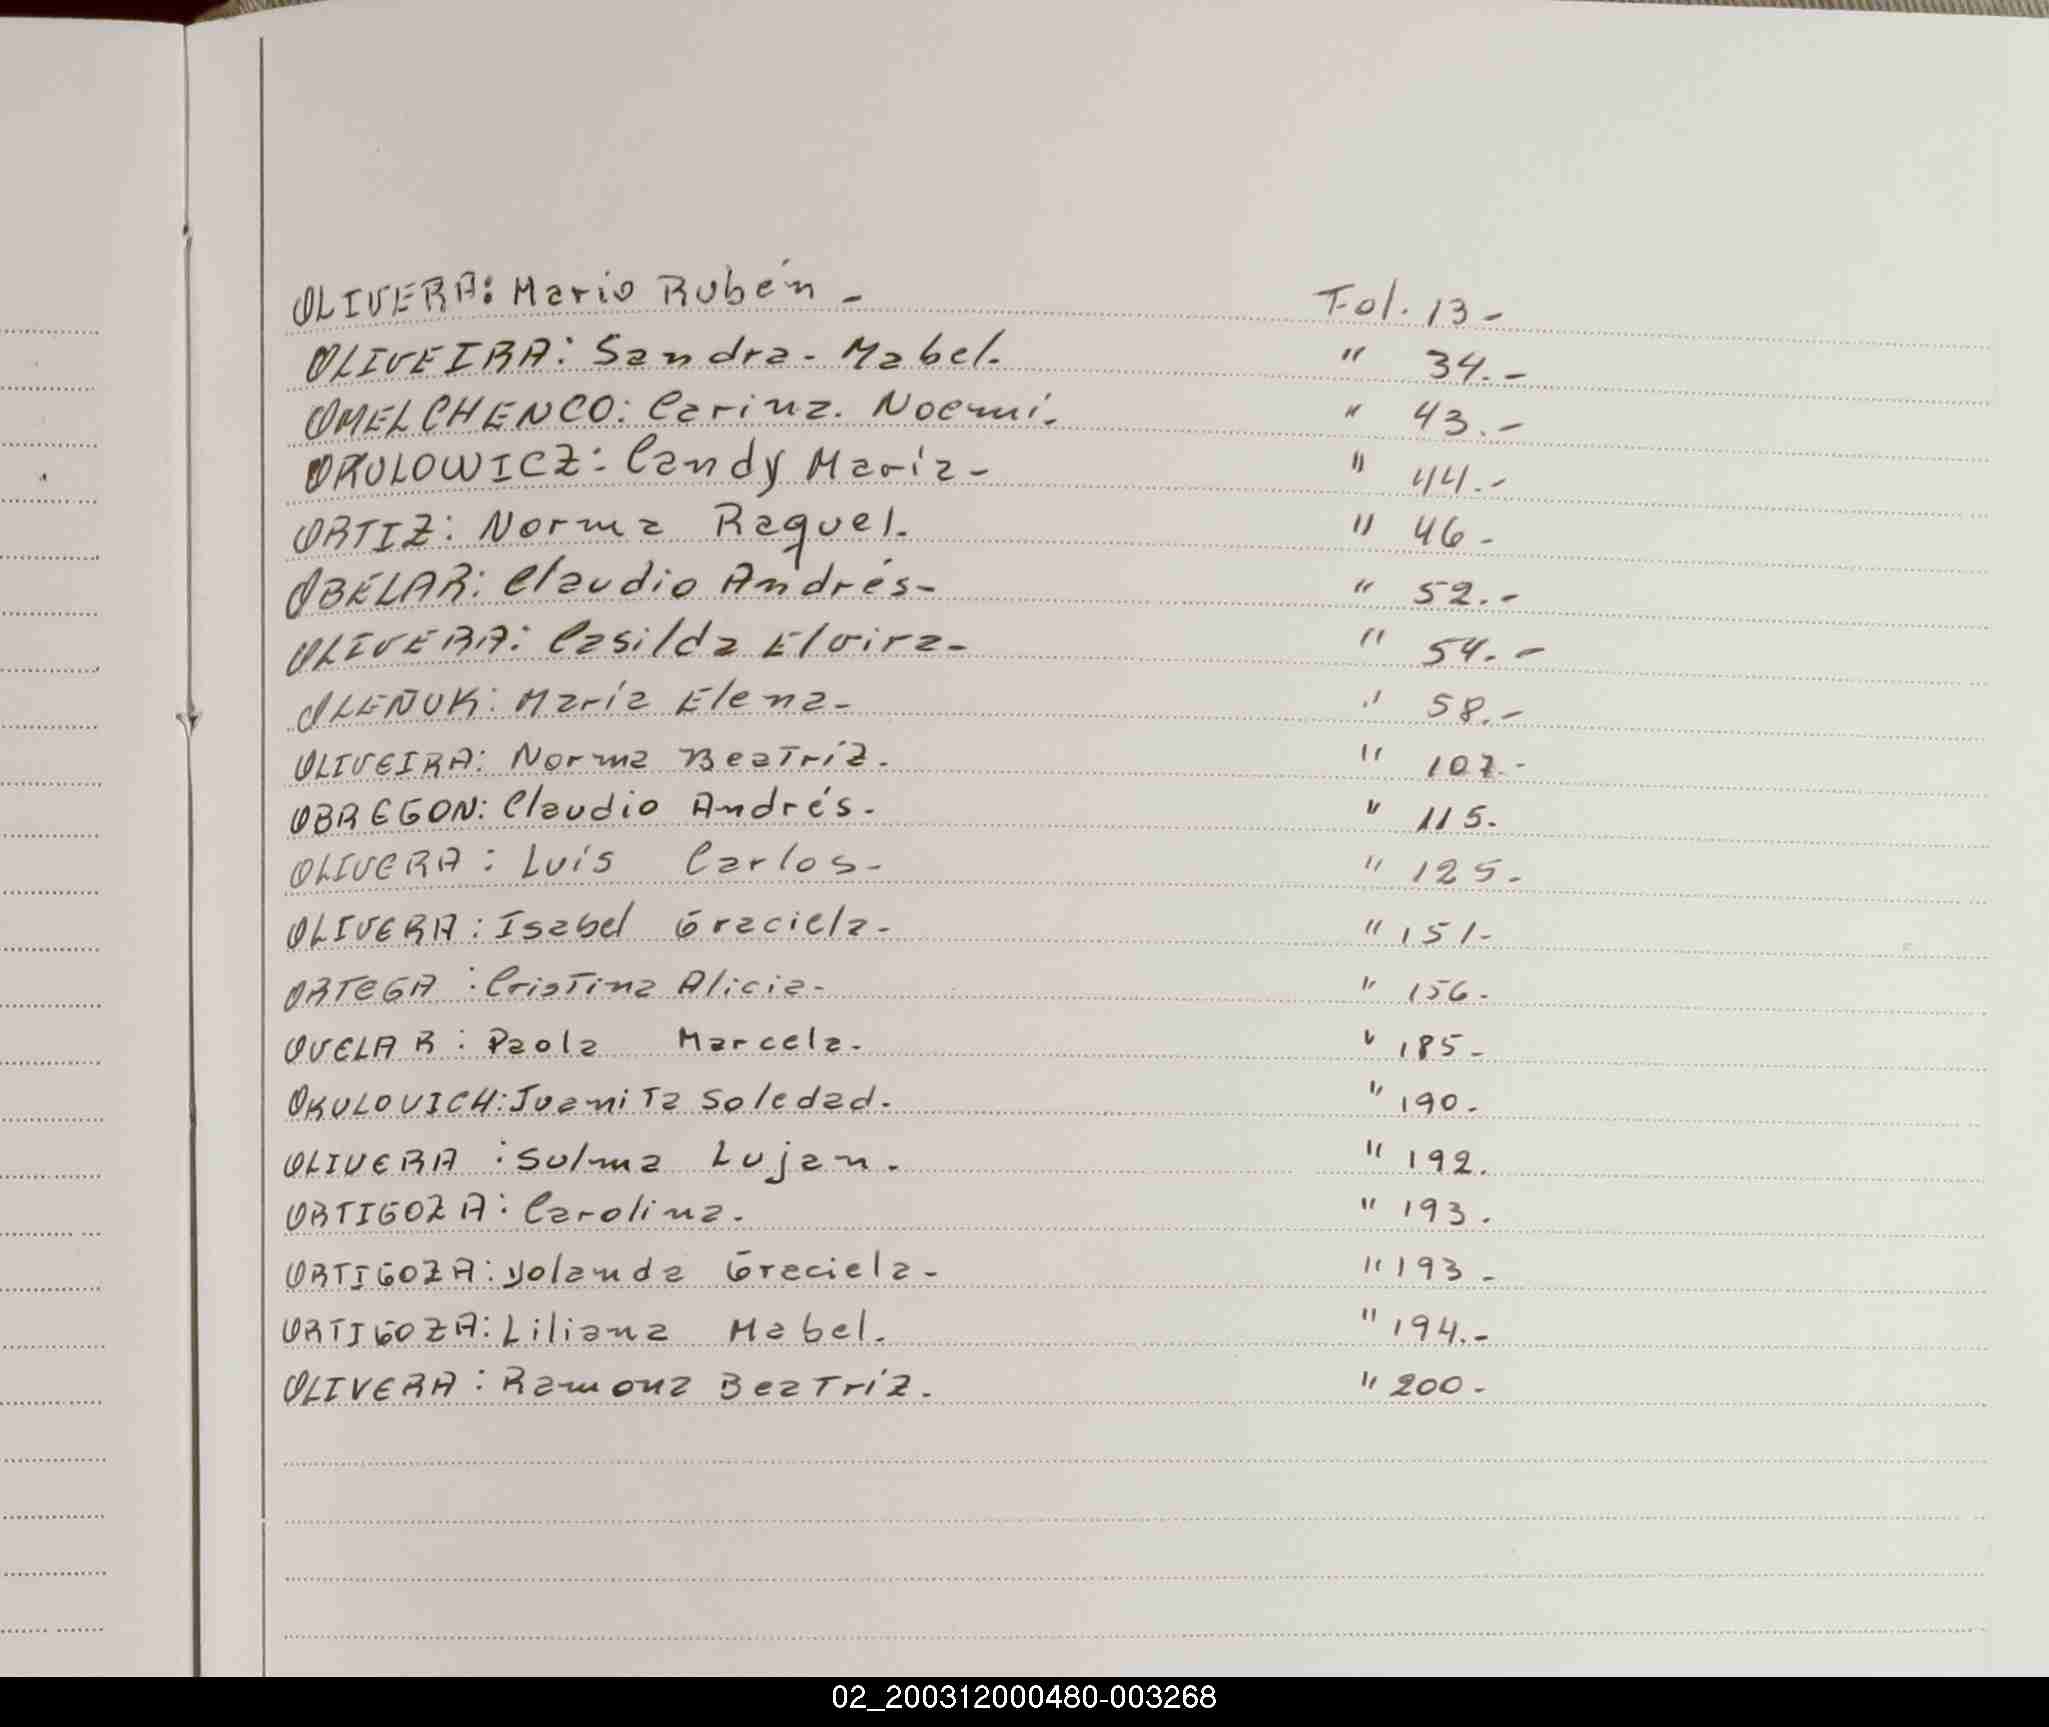 OLIVERA: Mario Rubén - Fol. 13 -
OLIVEIRA: Sandra - Mabel. " 34. -
OMELCHENCO: Carina. Noemí. " 43. -
OKULOWICZ: Candy María - " 44. -
ORTIZ: Norma Raquel. " 46 -
OBELAR: Claudio Andrés - " 52. -
OLIVERA: Casilda Elvira - " 54. -
OLEÑUK: María Elena - " 58. -
OLIVEIRA: Norma Beatríz. " 107. -
OBREGON: Claudio Andrés. " 115.
OLIVERA: Luís Carlos - " 125.
OLIVERA: Isabel Graciela - " 151 -
ORTEGA: Cristina Alicia - " 156 -
OVELAR: Paola Marcela. " 185 -
OKULOVICH: Juanita Soledad. " 190 -
OLIVERA: Sulma Lujan. " 192.
ORTIGOZA: Carolina. " 193.
ORTIGOZA: Yolanda Graciela - " 193 -
ORTIGOZA: Liliana Mabel. " 194. -
OLIVERA: Ramona Beatríz. " 200 -
02_200312000480-003268